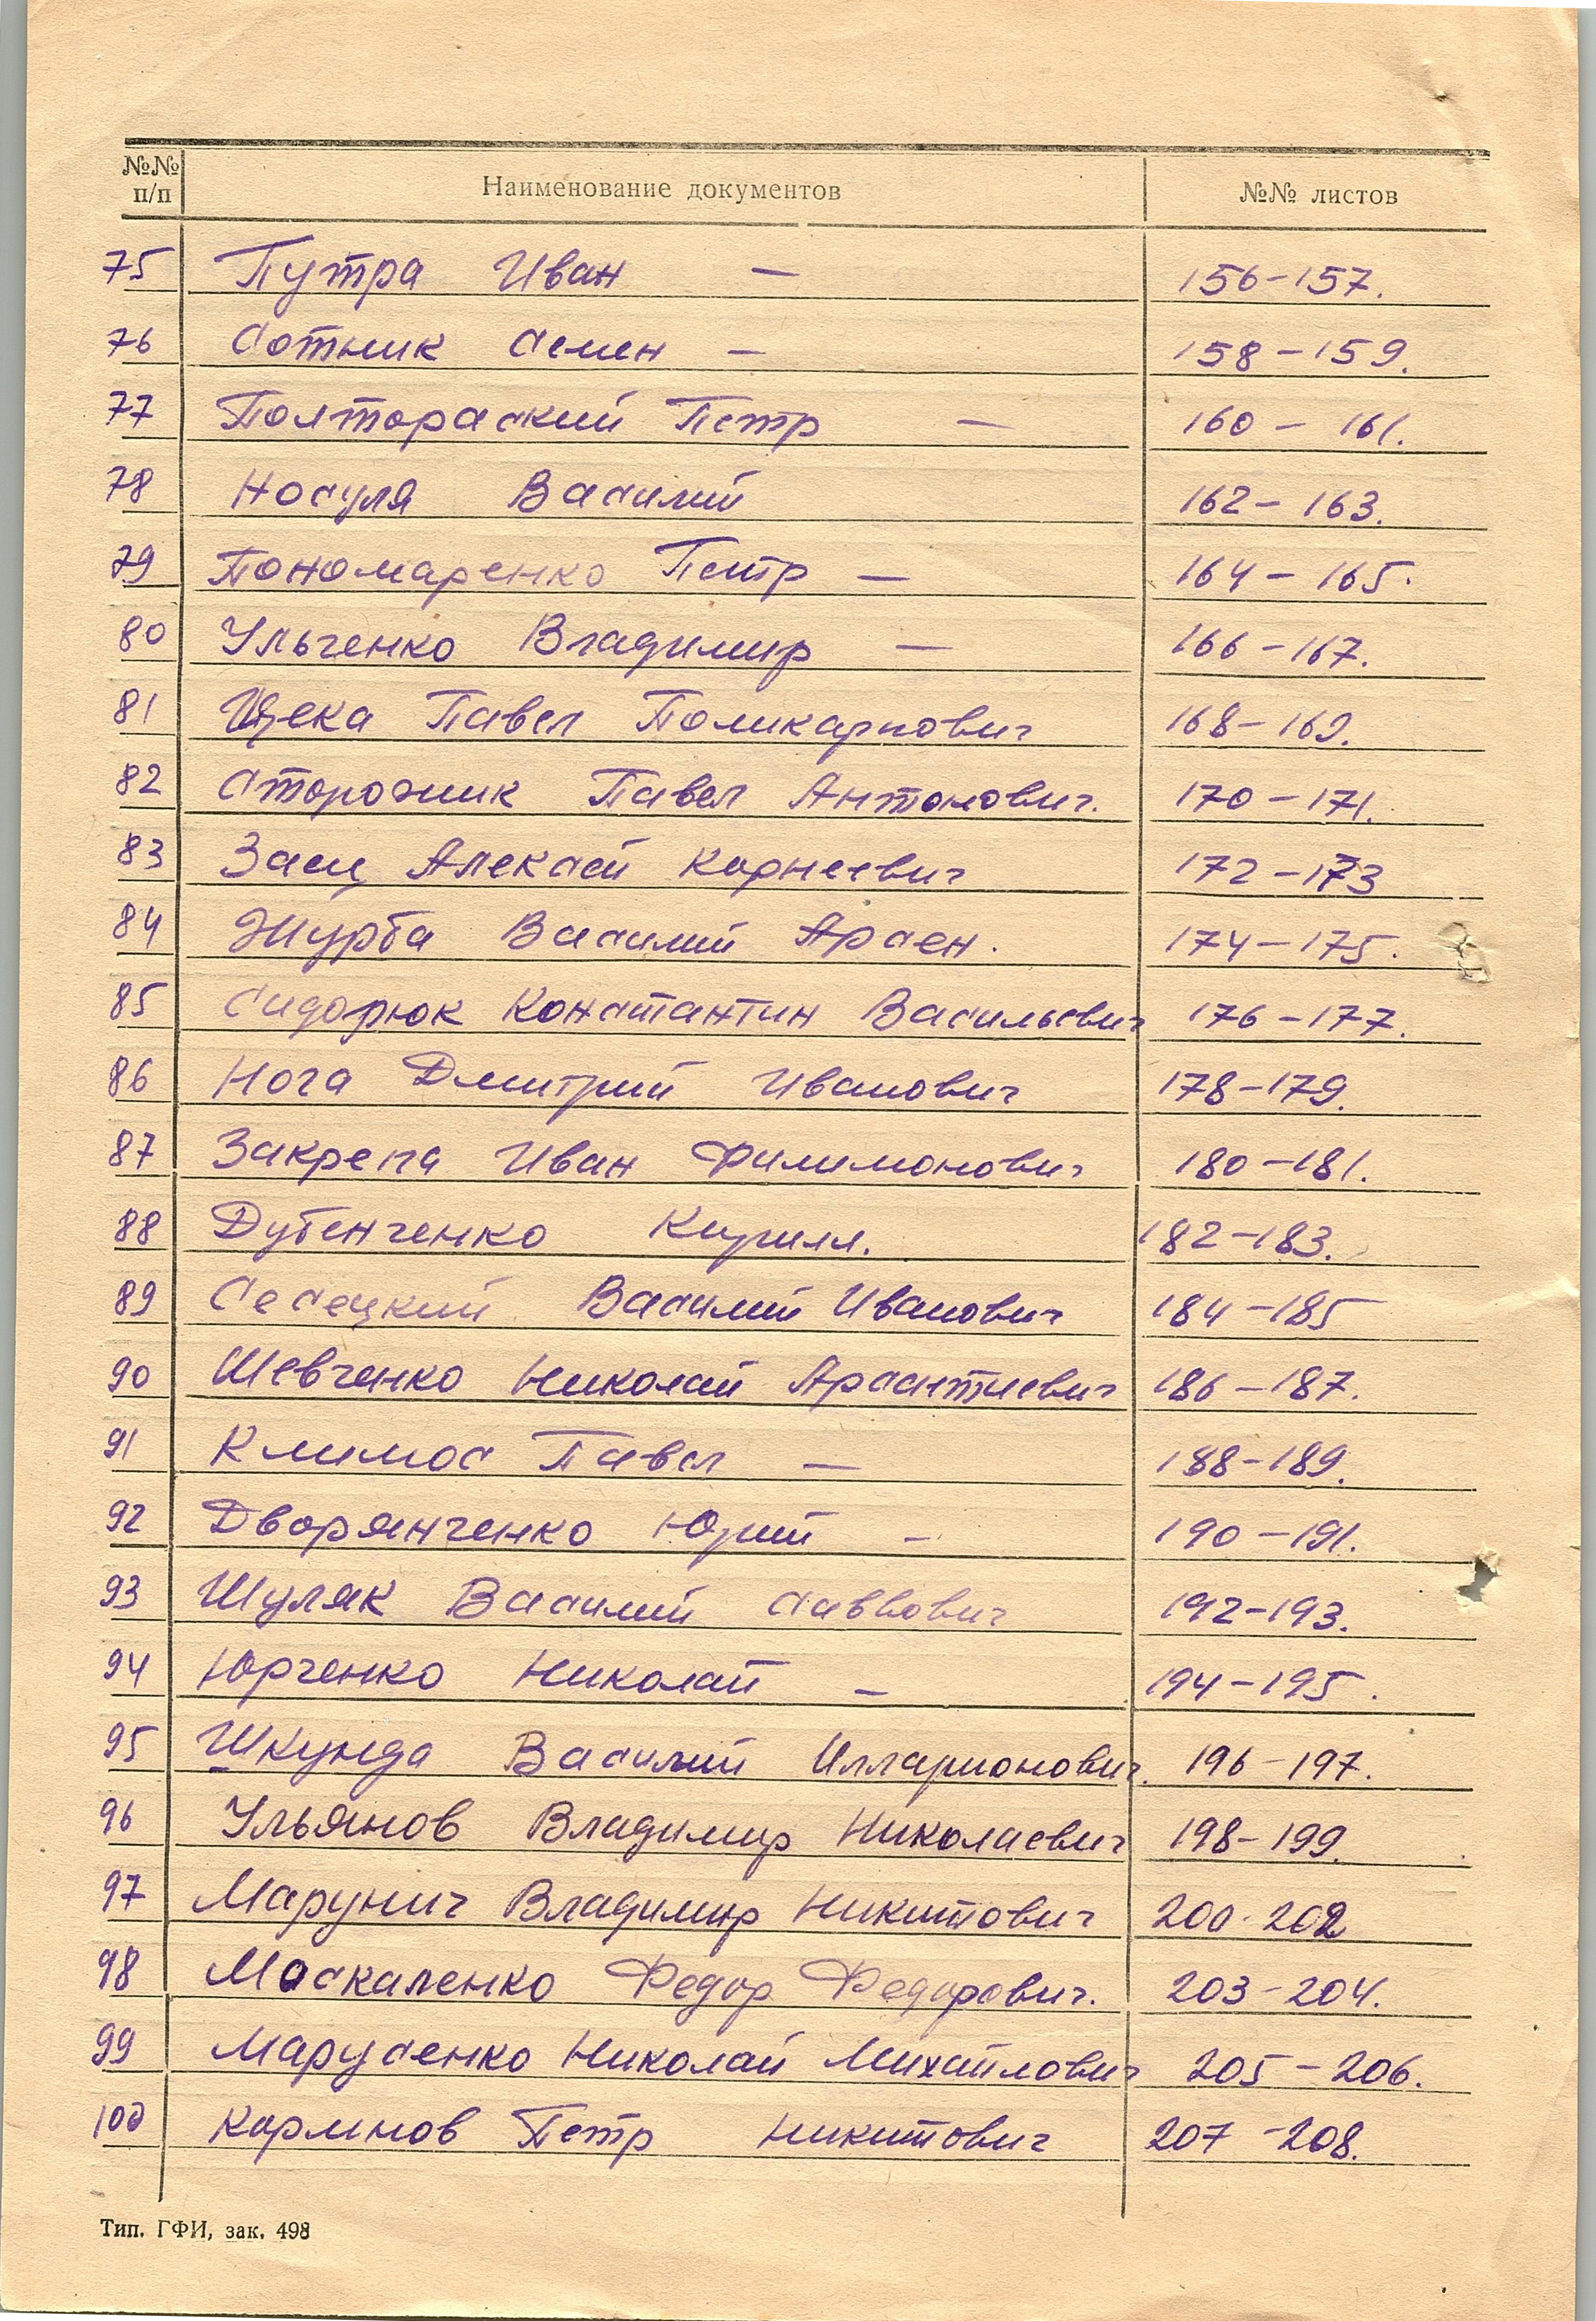 №№ п/п Наименование документов №№ листов
75 Путра Иван — 156-157.
76 Сотник Семен — 158-159.
77 Полторацкий Петр — 160 - 161.
78 Носуля Василий 162-163.
79 Пономаренко Петр — 164-165.
80 Ульченко Владимир — 166-167.
81 Щека Павел Поликарпович 168-169.
82 Сторожик Павел Антонович. 170-171.
83 Заец Алексей Корнеевич 172-173
84 Журба Василий Арсен. 174-175.
85 Сидорюк Константин Васильевич 176-177.
86 Нога Дмитрий Иванович 178-179.
87 Закрепа Иван Филимонович 180-181.
88 Дубенченко Кирилл. 182-183.
89 Седецкий Василий Иванович 184-185
90 Шевченко Николай Арсентиевич 186-187.
91 Климос Павел — 188-189.
92 Дворянченко Юрий — 190-191.
93 Шуляк Василий Саввович 192-193.
94 Юрченко Николай — 194-195.
95 Шкунда Василий Илларионович. 196-197.
96 Ульянов Владимир Николаевич 198-199.
97 Марунич Владимир Никитович 200-202
98 Москаленко Федор Федорович. 203-204.
99 Марусенко Николай Михайлович 205-206.
100 Кормнов Петр Никитович 207-208.
Тип. ГФИ, зак. 498